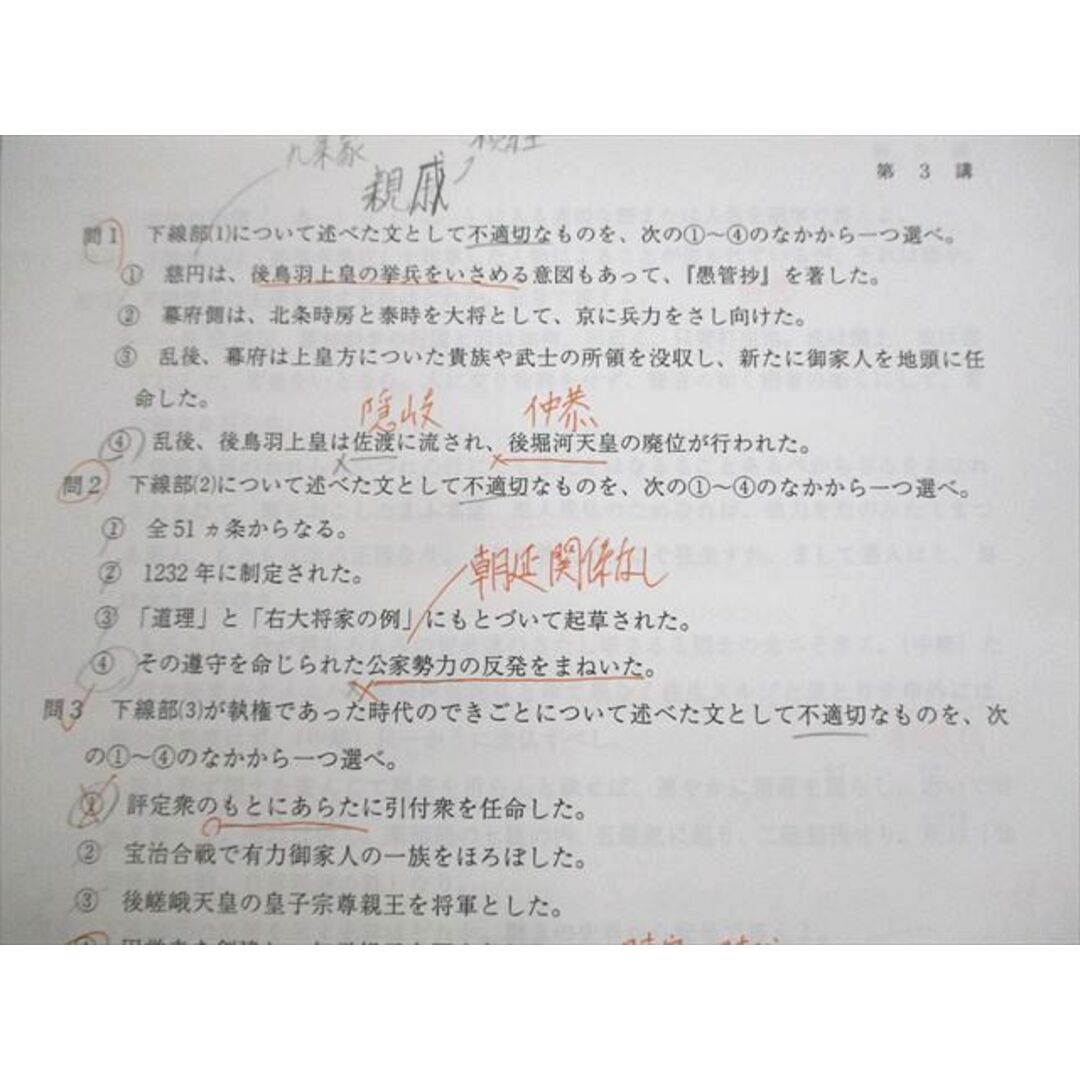 九条家
親戚
第 3 講
問1 下線部(1)について述べた文として不適切なものを、次の①～④のなかから一つ選べ。
① 慈円は、後鳥羽上皇の挙兵をいさめる意図もあって、『愚管抄』を著した。
② 幕府側は、北条時房と泰時を大将として、京に兵力をさし向けた。
③ 乱後、幕府は上皇方についた貴族や武士の所領を没収し、新たに御家人を地頭に任
命した。
隠岐 仲恭
④ 乱後、後鳥羽上皇は佐渡に流され、後堀河天皇の廃位が行われた。
問2 下線部(2)について述べた文として不適切なものを、次の①～④のなかから一つ選べ。
① 全51ヵ条からなる。
② 1232年に制定された。
朝廷関係なし
③ 「道理」と「右大将家の例」にもとづいて起草された。
④ その遵守を命じられた公家勢力の反発をまねいた。
問3 下線部(3)が執権であった時代のできごとについて述べた文として不適切なものを、次
の①～④のなかから一つ選べ。
① 評定衆のもとにあらたに引付衆を任命した。
② 宝治合戦で有力御家人の一族をほろぼした。
③ 後嵯峨天皇の皇子宗尊親王を将軍とした。